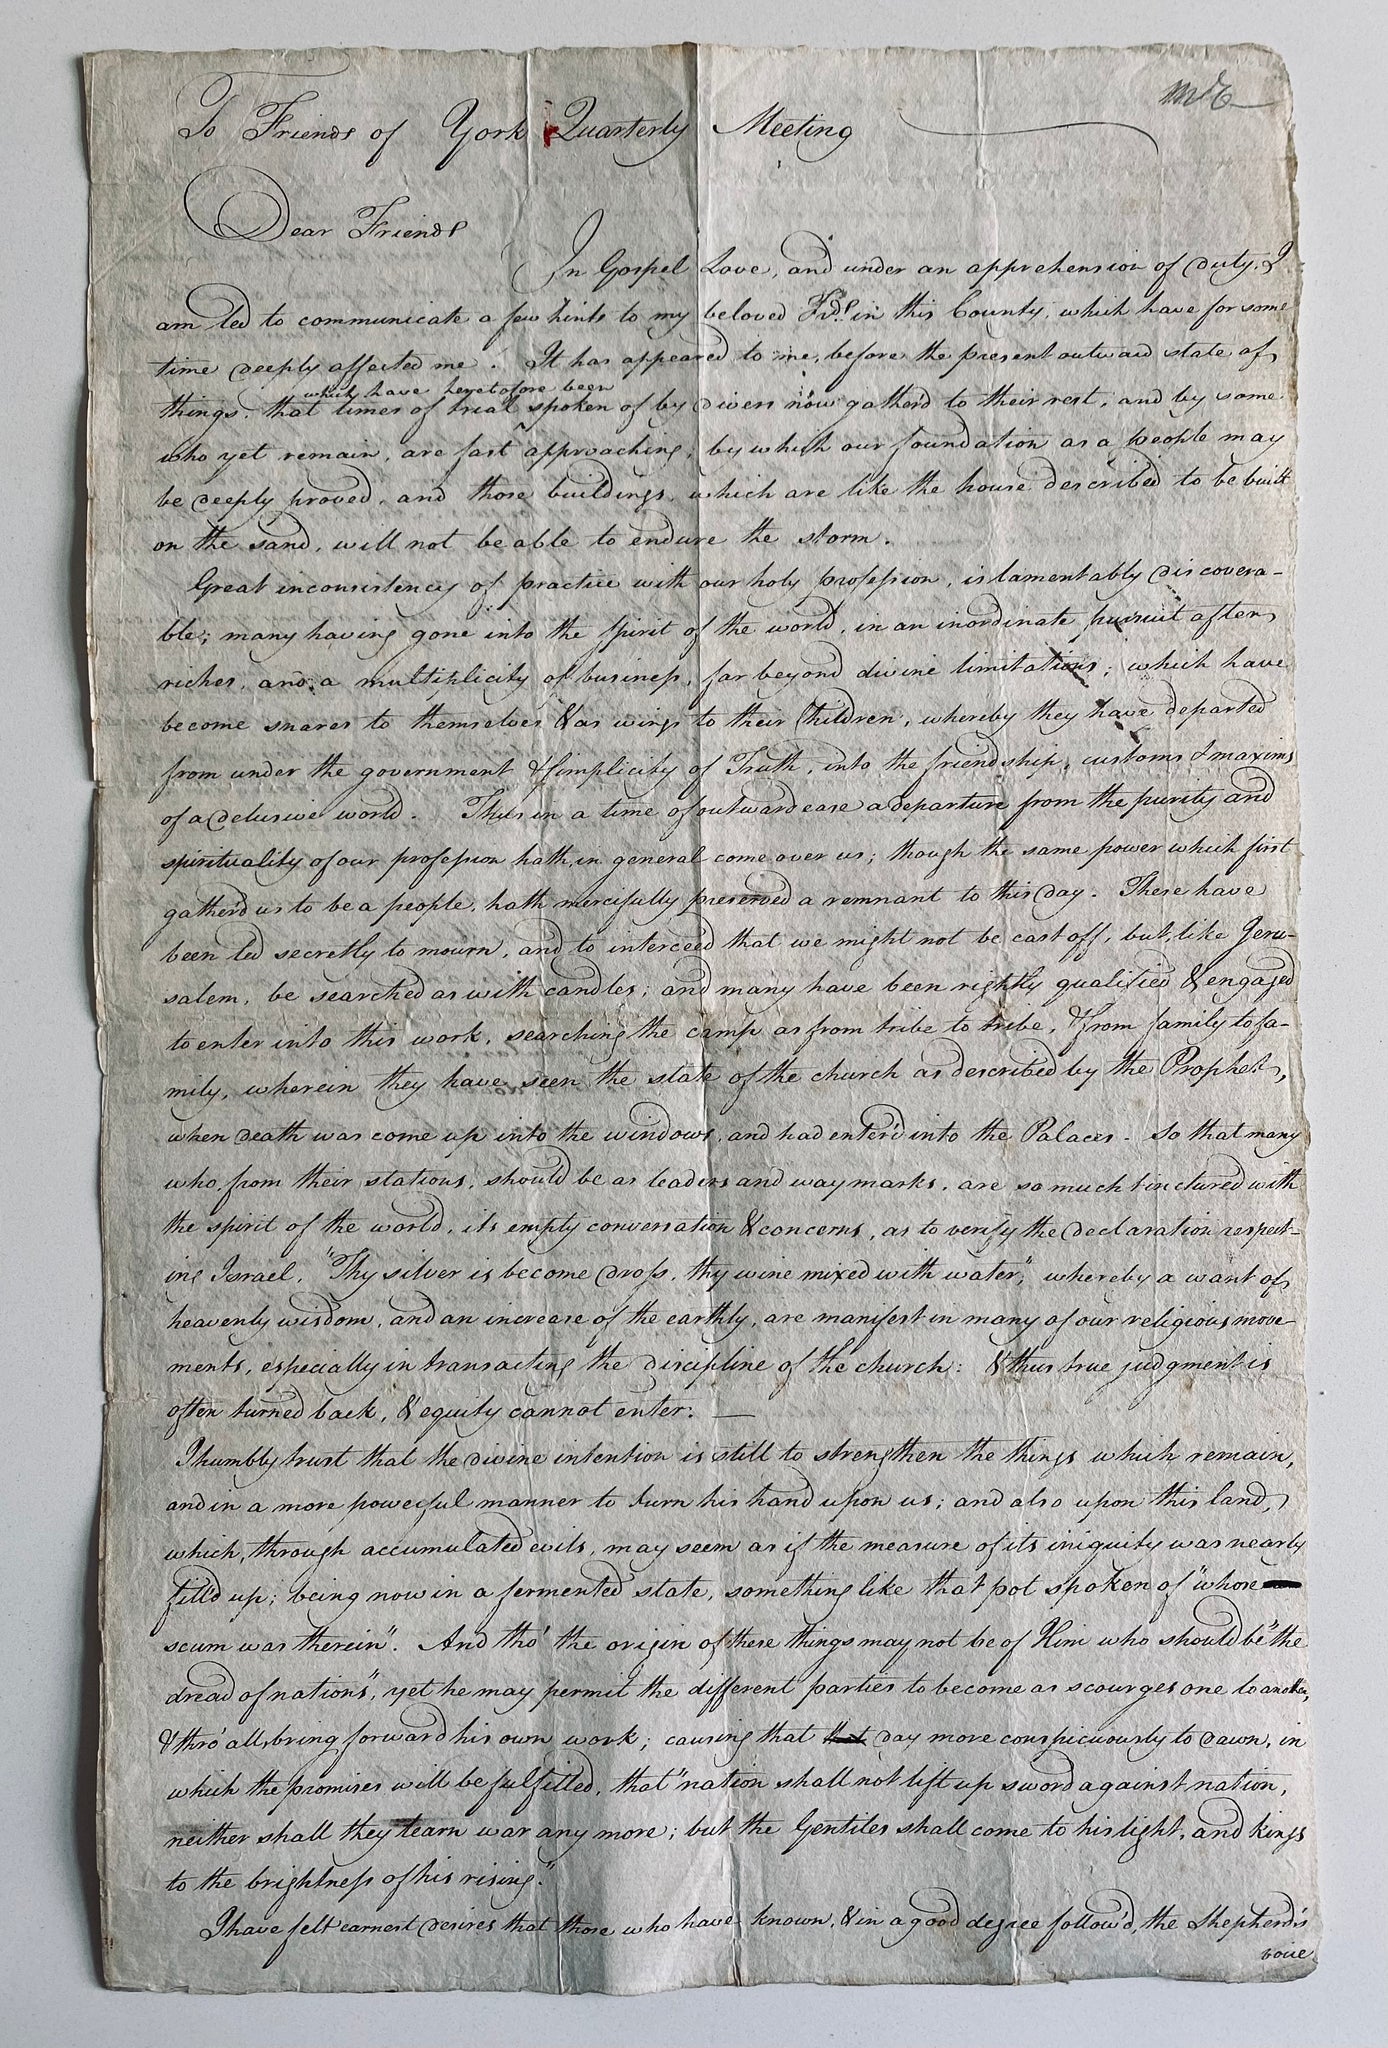 To Friends of York Quarterly Meeting
Dear Friends
In Gospel Love, and under an apprehension of duty, I
am led to communicate a few hints to my beloved Frds. in this County, which have for some
time deeply affected me. It has appeared to me, before the present outward state of
which have heretofore been
things, that times of trial ‸ spoken of by divers now gather'd to their rest, and by some
who yet remain, are fast approaching; by which our foundation as a people may
be deeply proved, and those buildings, which are like the house described to be built
on the sand, will not be able to endure the storm.
Great inconsistency of practice with our holy profession, is lamentably discovera-
ble; many having gone into the spirit of the world, in an inordinate pursuit after
riches, and a multiplicity of business, far beyond divine limitations; which have
become snares to themselves & as wings to their Children, whereby they have departed
from under the government & simplicity of Truth, into the friendship, customs & maxims
of a delusive world. Thus in a time of outward ease a departure from the purity and
spirituality of our profession hath, in general come over us; though the same power which first
gather'd us to be a people, hath mercifully preserved a remnant to this day. These have
been led secretly to mourn, and to interceed that we might not be cast off, but, like Jeru-
salem, be searched as with candles; and many have been rightly qualified & engaged
to enter into this work, searching the camp as from tribe to tribe, & from family to fa-
mily, wherein they have seen the state of the church as described by the Prophet,
when death was come up into the windows, and had enter'd into the Palaces. So that many
who, from their stations, should be as leaders and way marks, are so much tinctured with
the spirit of the world, its empty conversation & concerns, as to verify the declaration respect-
ing Israel, "Thy silver is become dross, thy wine mixed with water", whereby a want of
heavenly wisdom, and an increase of the earthly, are manifest in many of our religious move-
ments, especially in transacting the discipline of the church: & thus true judgment is
often turned back, & equity cannot enter. —
I humbly trust that the divine intention is still to strengthen the things which remain,
and in a more powerful manner to turn his hand upon us; and also upon this land,
which, through accumulated evils, may seem as if the measure of its iniquity was nearly
fill'd up; being now in a fermented state, something like that pot spoken of "whose
scum was therein". And tho' the origin of these things may not be of Him who should be "the
dread of nations", yet he may permit the different parties to become as scourges one to another,
& thro' all, bring forward his own work; causing that day more conspicuously to dawn, in
which the promises will be fulfilled, that "nation shall not lift up sword against nation,
neither shall they learn war any more; but the Gentiles shall come to his light, and kings
to the brightness of his rising."
I have felt earnest desires that those who have known, & in a good degree follow'd, the Shepherd's
voice